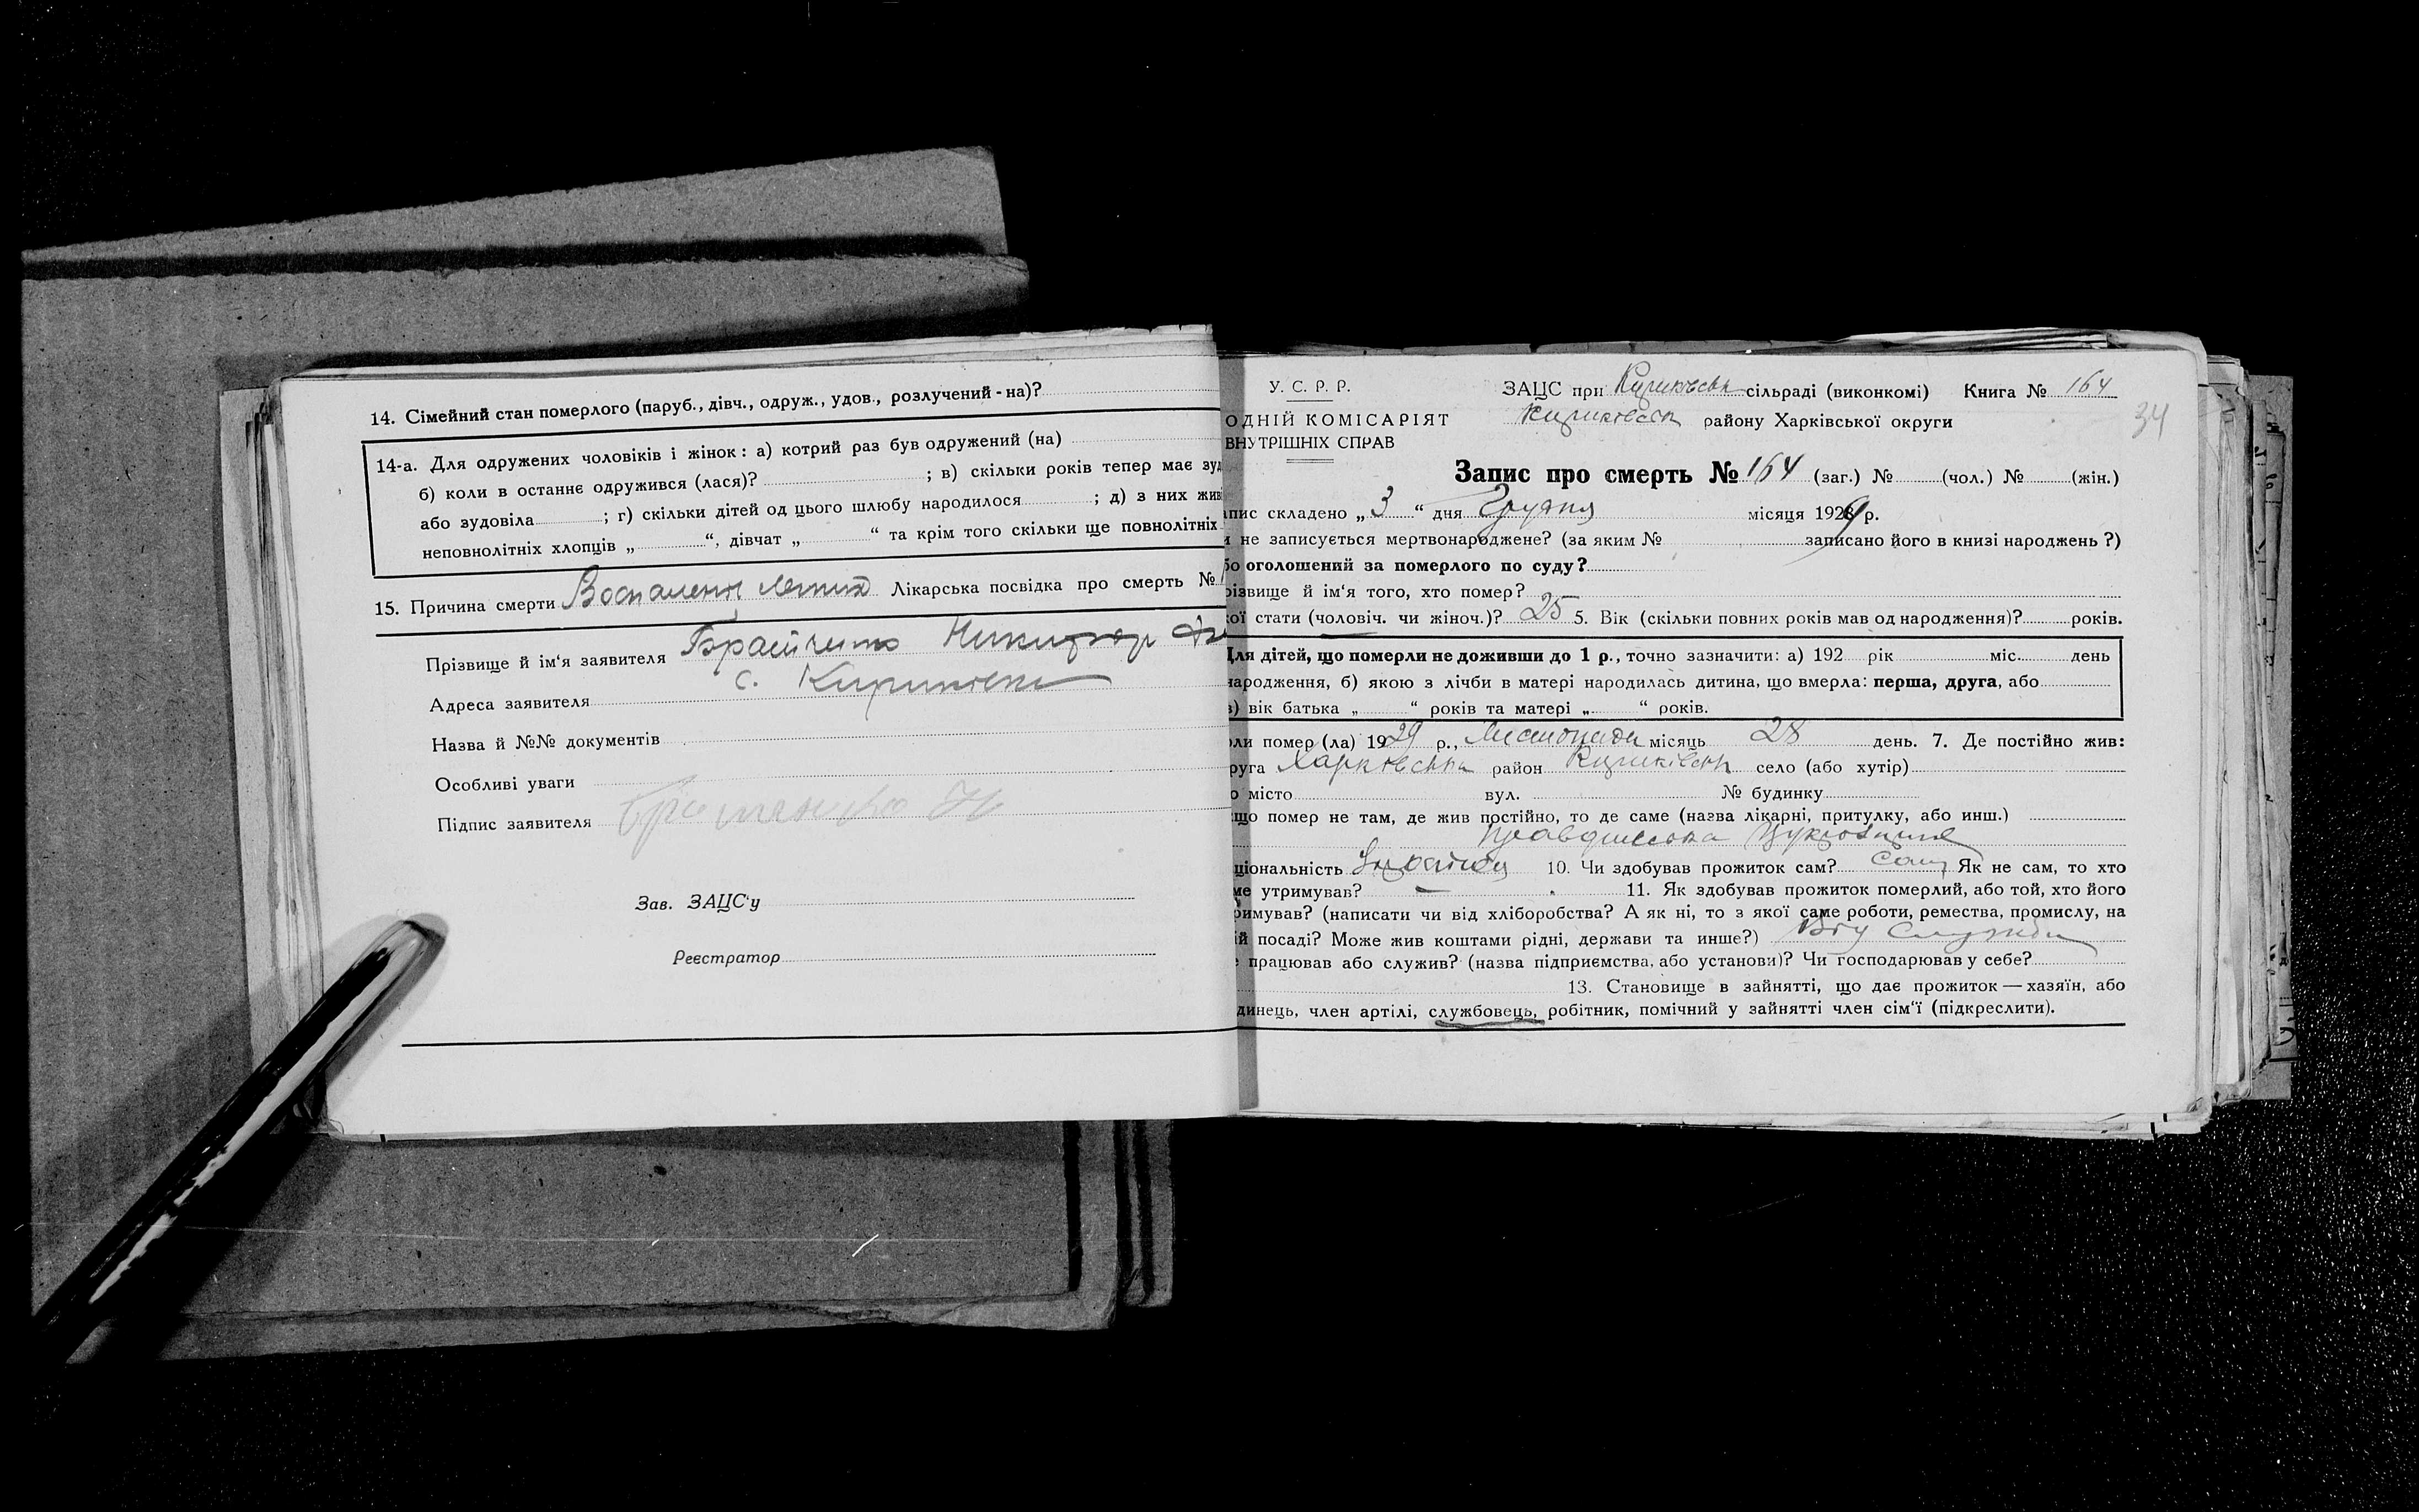 14. Сімейний стан померлого (паруб., дівч., одруж., удов., розлучений - на)?
14-а. Для одружених чоловіків і жінок: а) котрий раз був одружений (на)
б) коли в останнє одружився (лася)? ; в) скільки років тепер має
або зудовіла ; г) скільки дітей од цього шлюбу народилося ; д) з них
неповнолітніх хлопців „ “, дівчат „ “ та крім того скільки ще повнолітніх
15. Причина смерти Воспалення легких Лікарська посвідка про смерть №
Прізвище й ім‘я заявителя Никифор
Адреса заявителя с. Кириківка
Назва й №№ документів
Особливі уваги
Підпис заявителя
Зав. ЗАЦС‘у
Реєстратор
У. С. Р. Р.
ОДНІЙ КОМІСАРІЯТ
ВНУТРІШНІХ СПРАВ
ЗАЦС при Кириківськ сільраді (виконкомі) Книга № 164
34
Кириківськ району Харківської округи
Запис про смерть № 164 (заг.) № (чол.) № (жін.)
пис складено „ 3 “ дня Грудня місяця 1929 р.
не записується мертвонароджене? (за яким № записано його в книзі народжень ?)
оголошений за померлого по суду?
різвище й ім‘я того, хто помер?
кої стати (чоловіч. чи жіноч.)? 25 5. Вік (скільки повних років мав од народження)? років.
Для дітей, що померли не доживши до 1 р., точно зазначити: а) 192 рік міс. день
народження, б) якою з лічби в матері народилась дитина, що вмерла: перша, друга, або
в) вік батька „ “ років та матері „ “ років.
ли помер (ла) 1929 р., Листопада місяць 28 день. 7. Де постійно жив:
руга Харківська район Кириківськ село (або хутір)
о місто вул. № будинку
що помер не там, де жив постійно, то де саме (назва лікарні, притулку, або инш.)
ціональність 10. Чи здобував прожиток сам? Сам Як не сам, то хто
ме утримував? — 11. Як здобував прожиток померлий, або той, хто його
римував? (написати чи від хліборобства? А як ні, то з якої саме роботи, ремества, промислу, на
ій посаді? Може жив коштами рідні, держави та инше?) Від служби
працював або служив? (назва підприємства, або установи)? Чи господарював у себе?
13. Становище в зайнятті, що дає прожиток — хазяїн, або
динець, член артілі, службовець, робітник, помічний у зайнятті член сім‘ї (підкреслити).